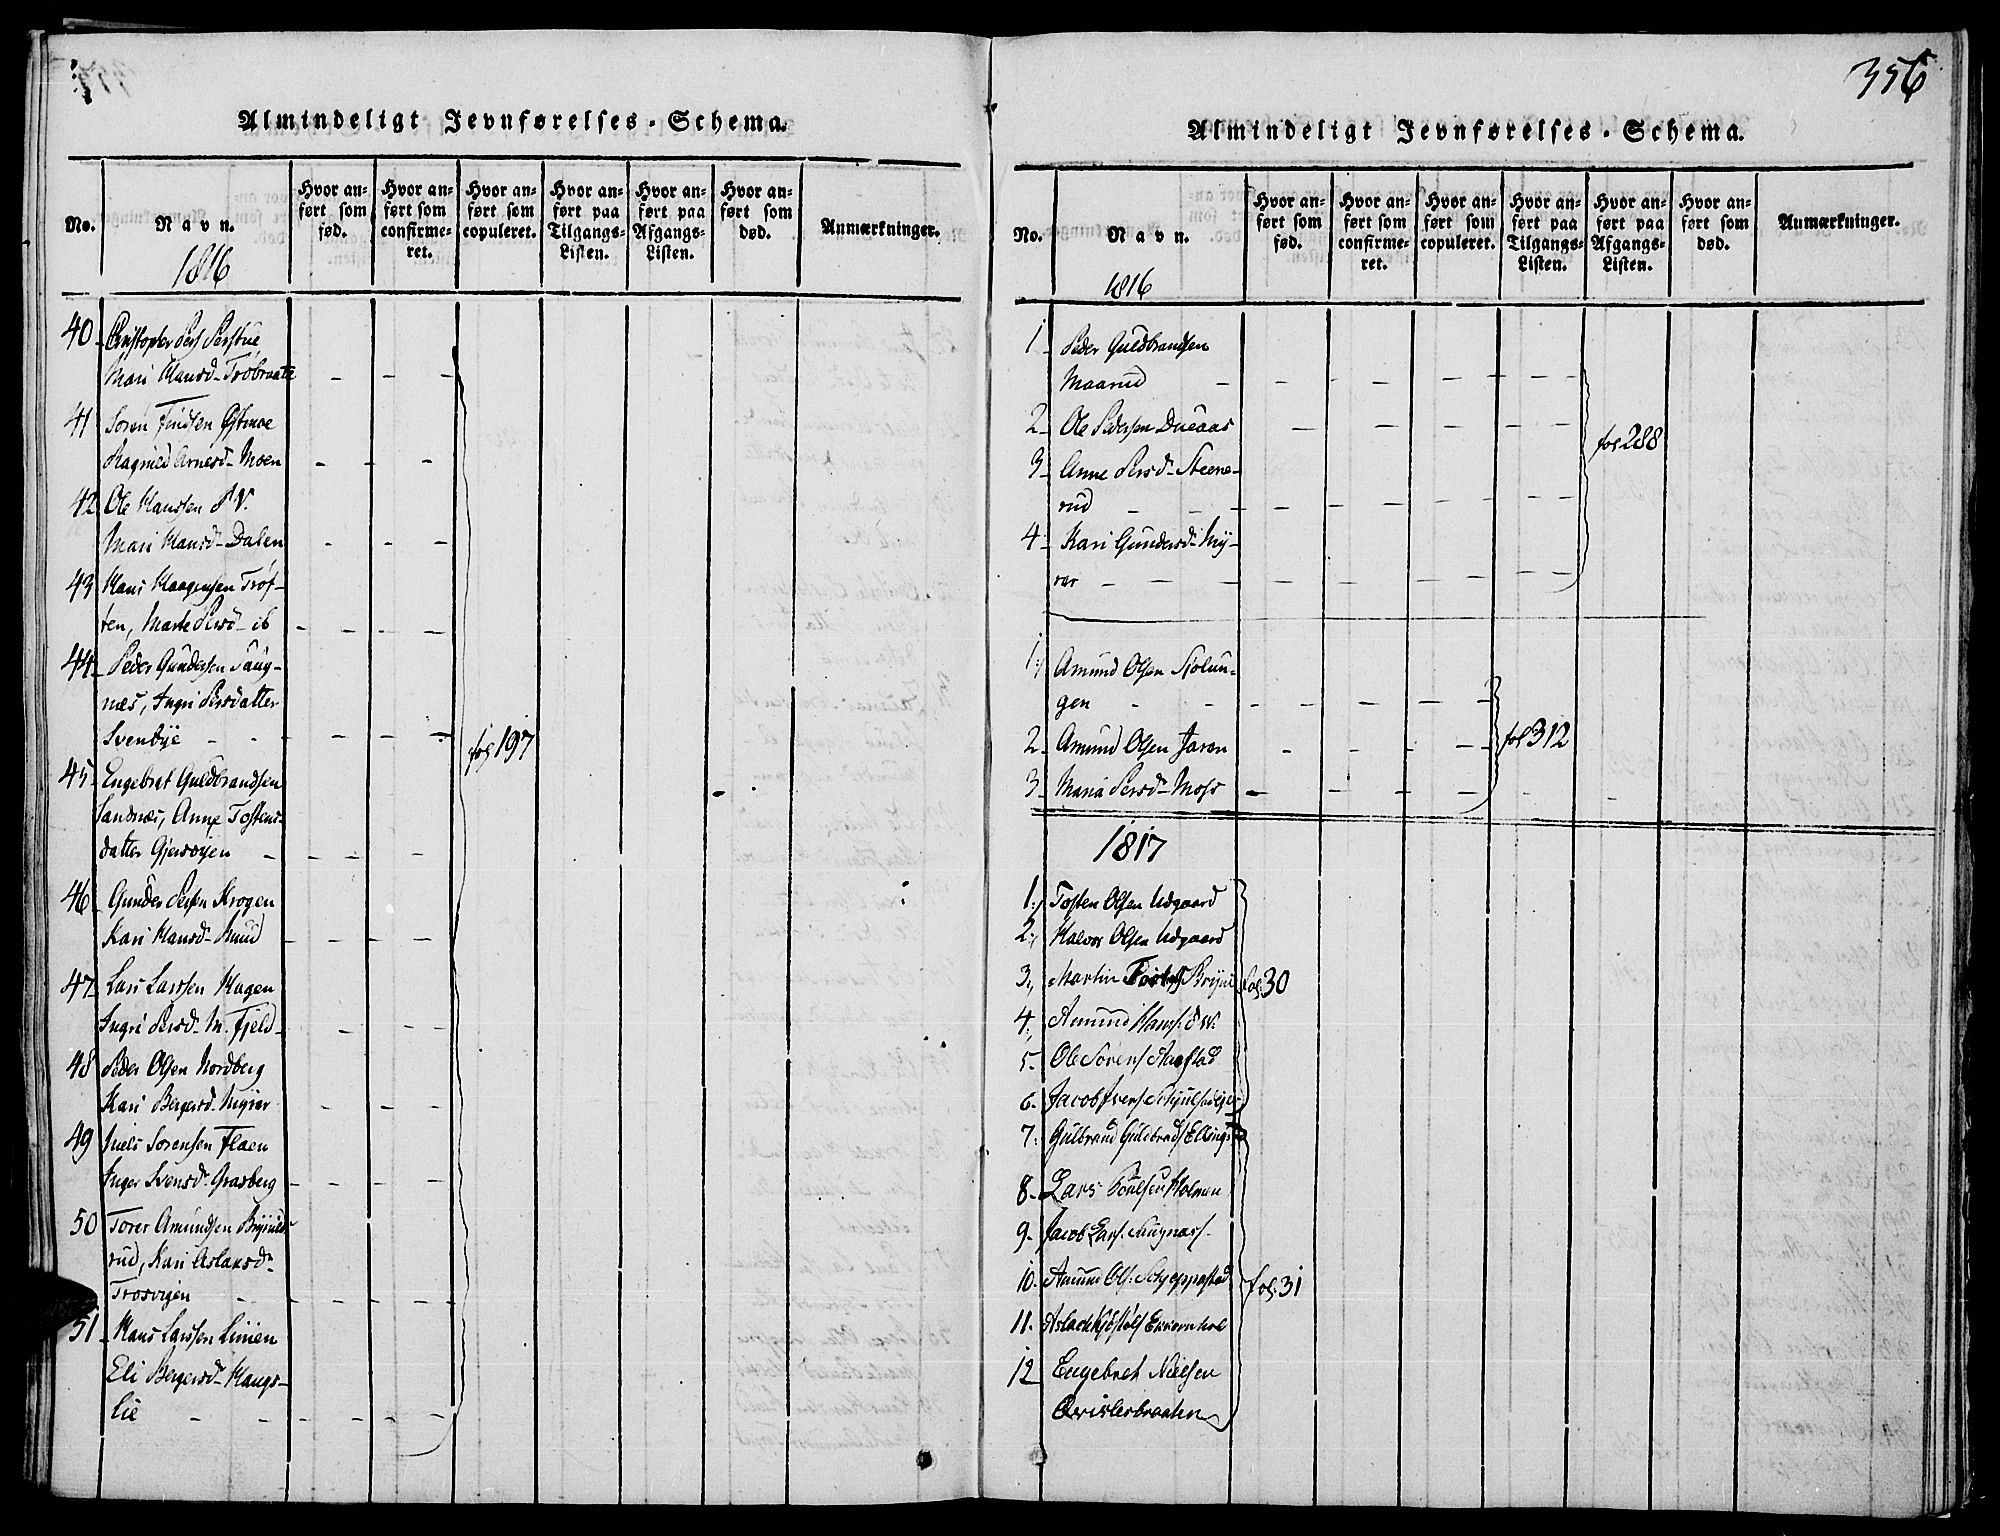 Almindeligt Jevnførelses-Schema.
No.
Navn.
1816
Hvor anført som fød.
Hvor anført som confirmeret.
Hvor anført som copuleret.
Hvor anført paa Tilgangs-Listen.
Hvor anført paa Afgangs-Listen.
Hvor anført som død.
Anmærkninger.
40 Christopher Pers
Mari Hansd. Tröbraate
41 Soren Findsen Östmoe
Ragnild Arnesd. Moen
42 Ole Hanssen
Mari Hansd. Dalen
43 Hans Haagensen Tröf-
ten, Marte Persd. ib
44 Peder Gundersen Saug-
næs, Ingri Persdatter
Svenbÿe
fol 197
45 Engebret Guldbrandsen
Sandnæs, Anne Tostens-
datter Gjersöyen
46 Gunder Persen Krogen
Kari Hansd. Ruud
47 Lars Larssen Hagen
Ingri Persd. M. Fjeld
48 Peder Olsen Nordberg
Kari Bergersd. Myrer
49 Niels Sorensen Floen
Inger Svensd. Grasberg
50 Torer Amundsen Brynils-
rud, Kari Aslaksd.
Trosvigen
51 Hans Larssen Linien
Eli Bergersd. Haugs-
lie
356
Almindeligt Jevnførelses-Schema.
No.
Navn.
1816
Hvor anført som fød.
Hvor anført som confirmeret.
Hvor anført som copuleret.
Hvor anført paa Tilgangs-Listen.
Hvor anført paa Afgangs-Listen.
Hvor anført som død.
Anmærkninger.
1 Peder Guldbrandsen
Maarud
2 Ole Pedersen Dueaas
fol 288
3 Anne Persd. Steene-
rud
4 Kari Gundersd. My-
rer
1 Amund Olsen Sjölun-
gen
2 Amund Olsen Jaren
fol 312
3 Maria Persd. Moss
1817
1 Tosten Olsen Udgaard
2 Halvor Olsen Udgaard
3 Martin
fol. 30
4 Amund Hans:
5 Ole Sörens
6 Jacob Ivers
7 Gulbrand Guldbrands Ellings
8 Lars Poulsen Holmen
9 Jacob Lars: Saugnæs
10 Amund Ols: Schjeppestad
fol. 31
11 Aslach Kjöstels Ekornhol
12 Engebret Nielsen
Qvislerbraaten